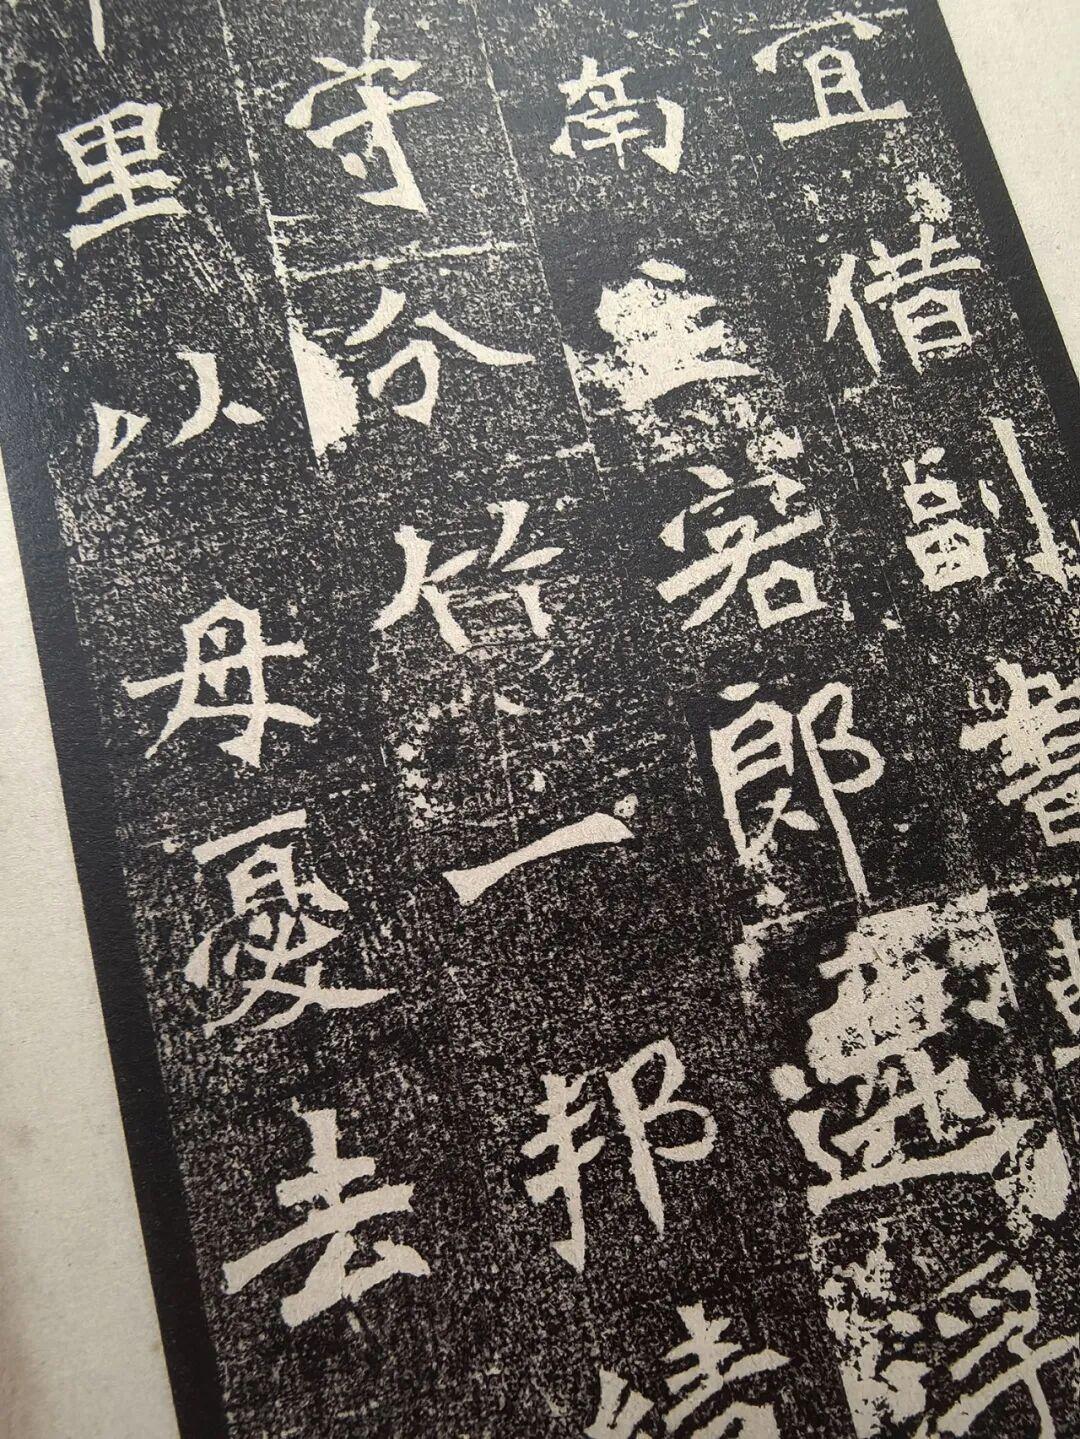 宜借副書
南主客郎
守分竹一邦
里以母憂去